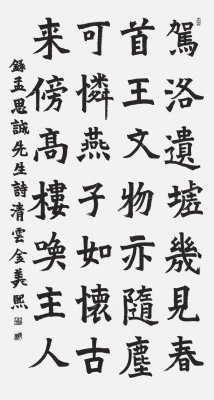 駕洛遺墟幾見春
首王文物亦隨塵
可憐燕子如懷古
来傍髙樓喚主人
錄孟思誠先生詩清雲金美熙